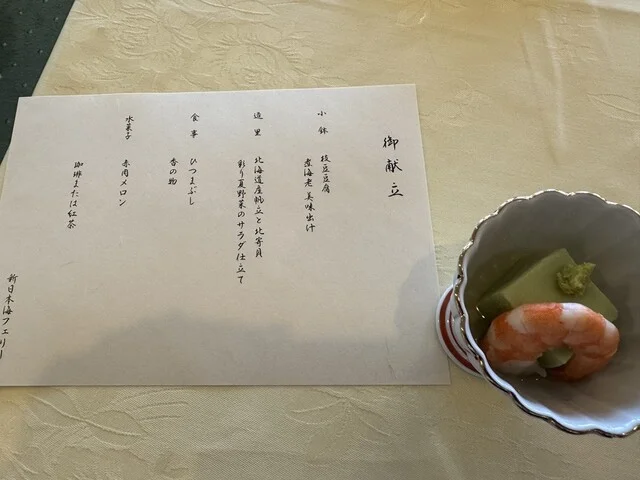 御献立
小鉢
枝豆豆腐
煮海老 美味出汁
造里
北海道産帆立と北寄貝
彩り夏野菜のサラダ仕立て
食事
ひつまぶし
香の物
水菓子
赤肉メロン
珈琲または紅茶
新日本海フェリー